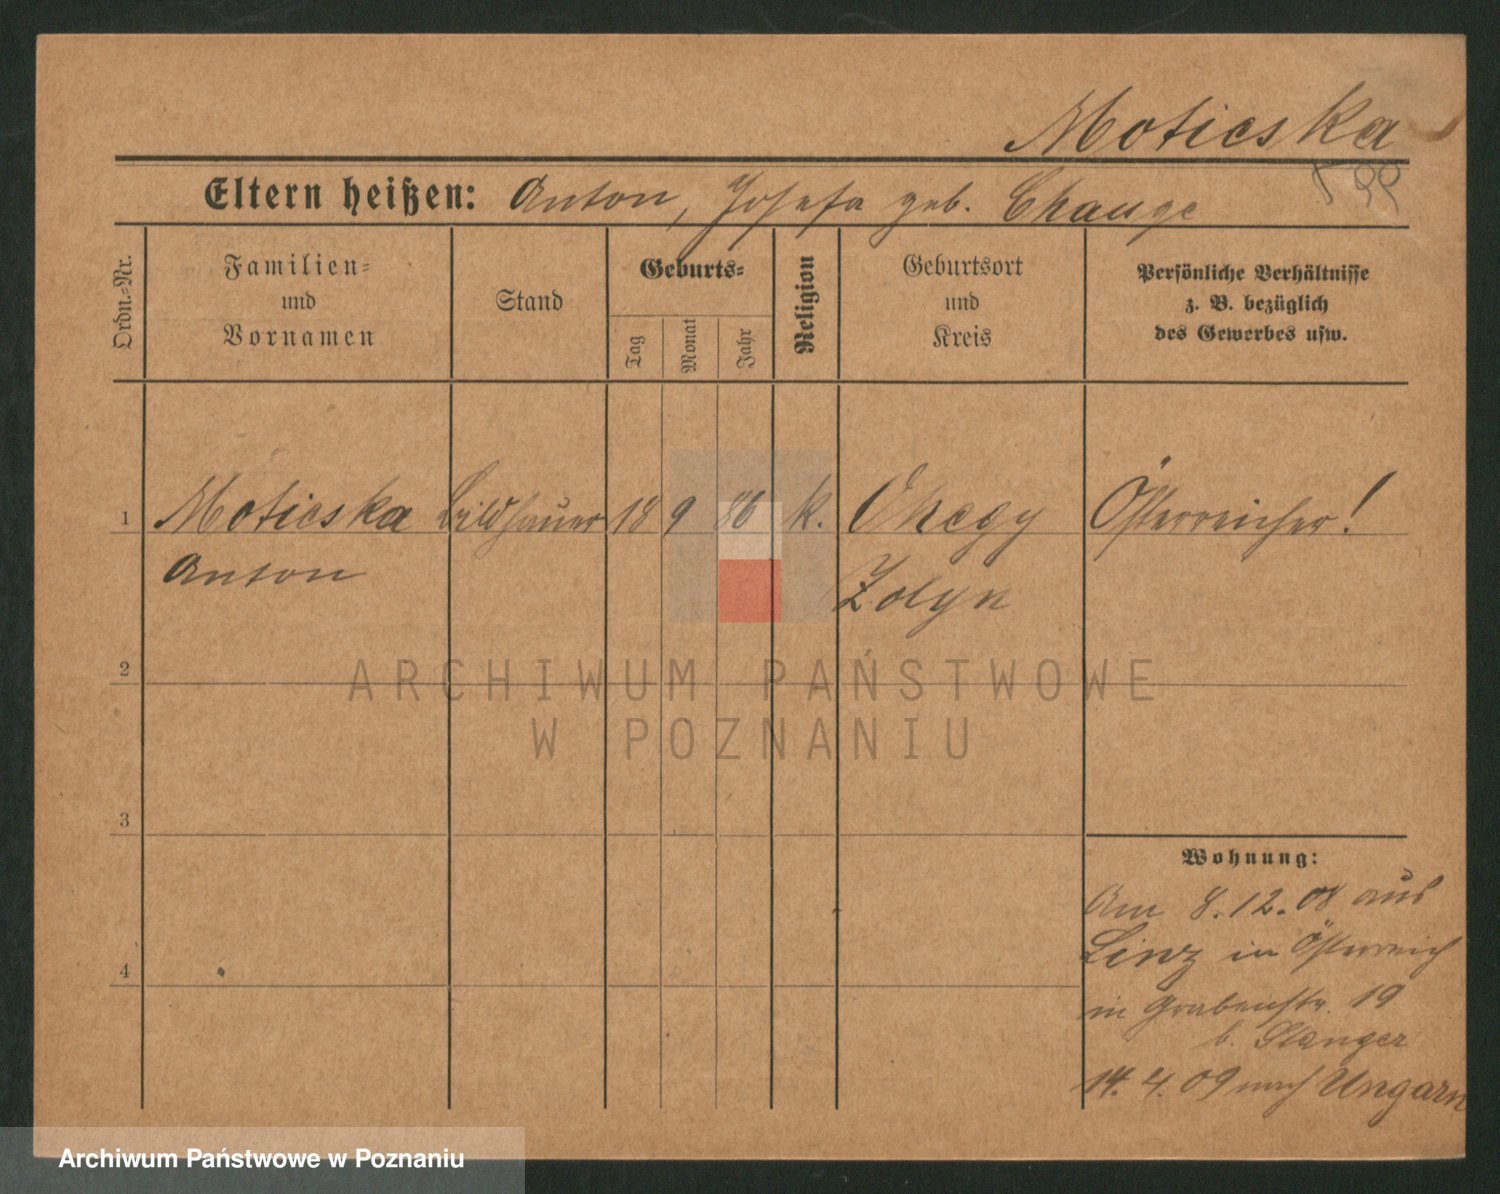 Moticska
Eltern heißen: Anton, Josefa geb. Change
Ordn.-Nr.
Familien-
und
Vornamen
Stand
Geburts-
Tag
Monat
Jahr
Religion
Geburtsort
und
Kreis
Persönliche Verhältnisse
z. B. bezüglich
des Gewerbes usw.
1 Moticska Bildhauer 18 9 86 k. Ohegy Österreicher!
Anton Zolyn
2
ARCHIWUM PAŃSTWOWE
W POZNANIU
3
Wohnung:
Am 8.12.08 aus
Linz in Österreich
4
in Grabenstr. 19
b. Stanger
14.4.09 nach Ungarn
Archiwum Państwowe w Poznaniu